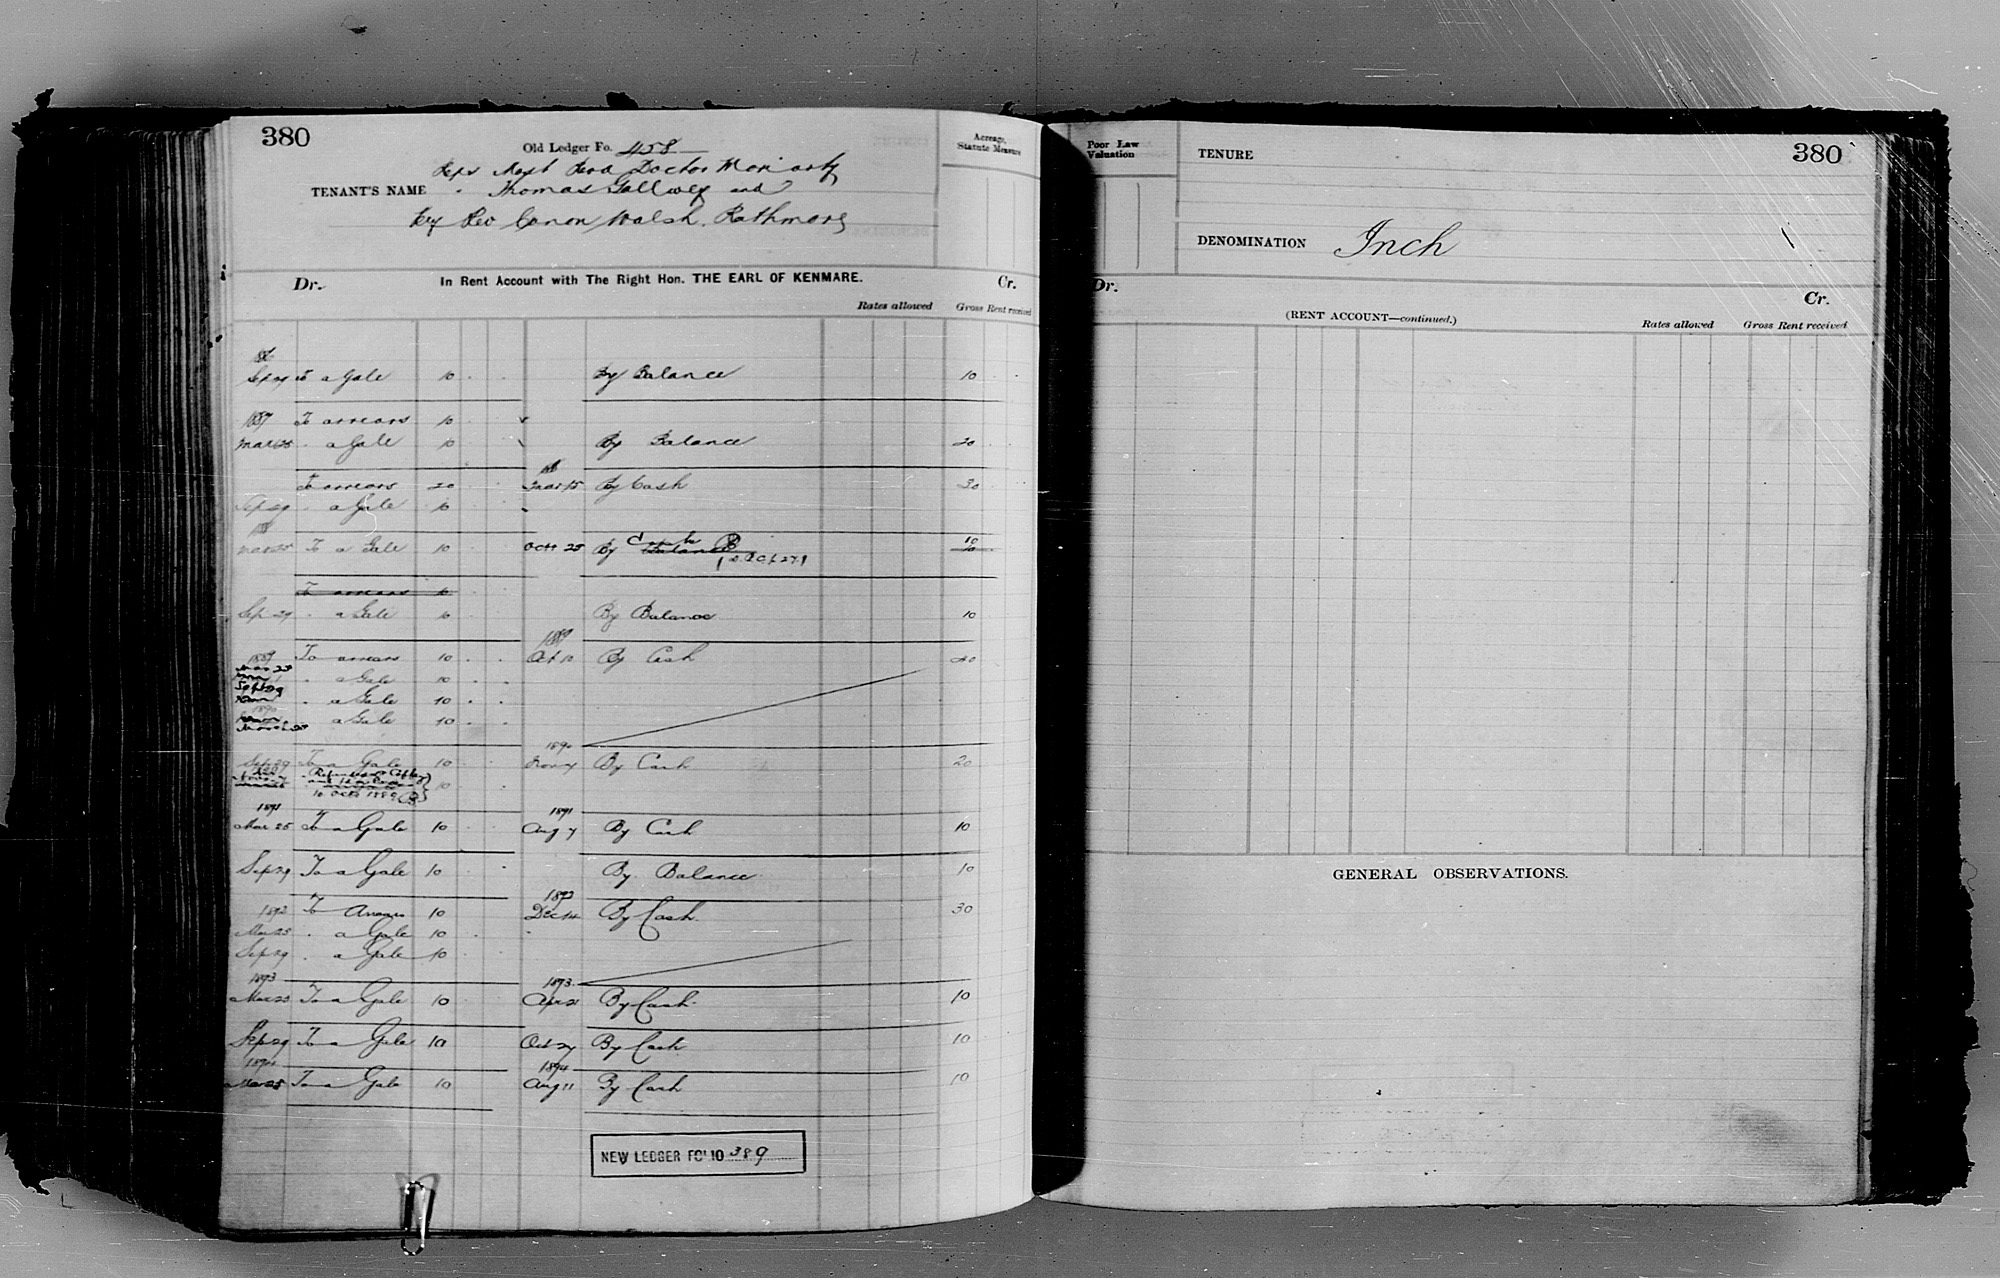 380
Old Ledger Fo. 458
Reps Most Revd Doctor Moriarty
TENANT'S NAME " Thomas Gallwey and
Very Rev Canon Walsh. Rathmore
Acreage, Statute Measure
Dr. In Rent Account with The Right Hon. THE EARL OF KENMARE. Cr.
Rates allowed Gross Rent received
86
Sep 29 To a Gale 10 . . By Balance 10 . .
1887 To arrears 10 . .
Mar 25 . a Gale 10 . . By Balance 20
88
To arrears 20 . . Mar 15 By Cash 30
Sep 29 . a Gale 10 . .
88
Mar 25 To a Gale 10 . . Oct 25 By Cash Balance 10
To arrears 10
Sep 29 . a Gale 10 By Balance 10
1889 1889
To arrears 10 . . Oct 10 By Cash 40
Mar 25 . a Gale 10 . .
Sept 29 . a Gale 10 . .
1890
March 25 . a Gale 10 . .
1890
Sep 29 To a Gale 10 . . Nov 4 By Cash 20
10 Oct 1889 10
1891 1891
Mar 25 To a Gale 10 . . Aug 7 By Cash 10
Sep 29 To a Gale 10 . By Balance 10
1892 1892
To Arrears 10 Dec 14 By Cash 30
Mar 25 . a Gale 10 .
Sep 29 . a Gale 10
1893 1893
Mar 25 To a Gale 10 Apr 21 By Cash. 10
Sep 29 To a Gale 10 Oct 27 By Cash 10
1894 1894
Mar 25 To a Gale 10 Aug 11 By Cash 10
NEW LEDGER FOLIO 389
Poor Law Valuation
TENURE 380
DENOMINATION Inch
Dr. Cr.
(RENT ACCOUNT—continued.)
Rates allowed Gross Rent received
GENERAL OBSERVATIONS.